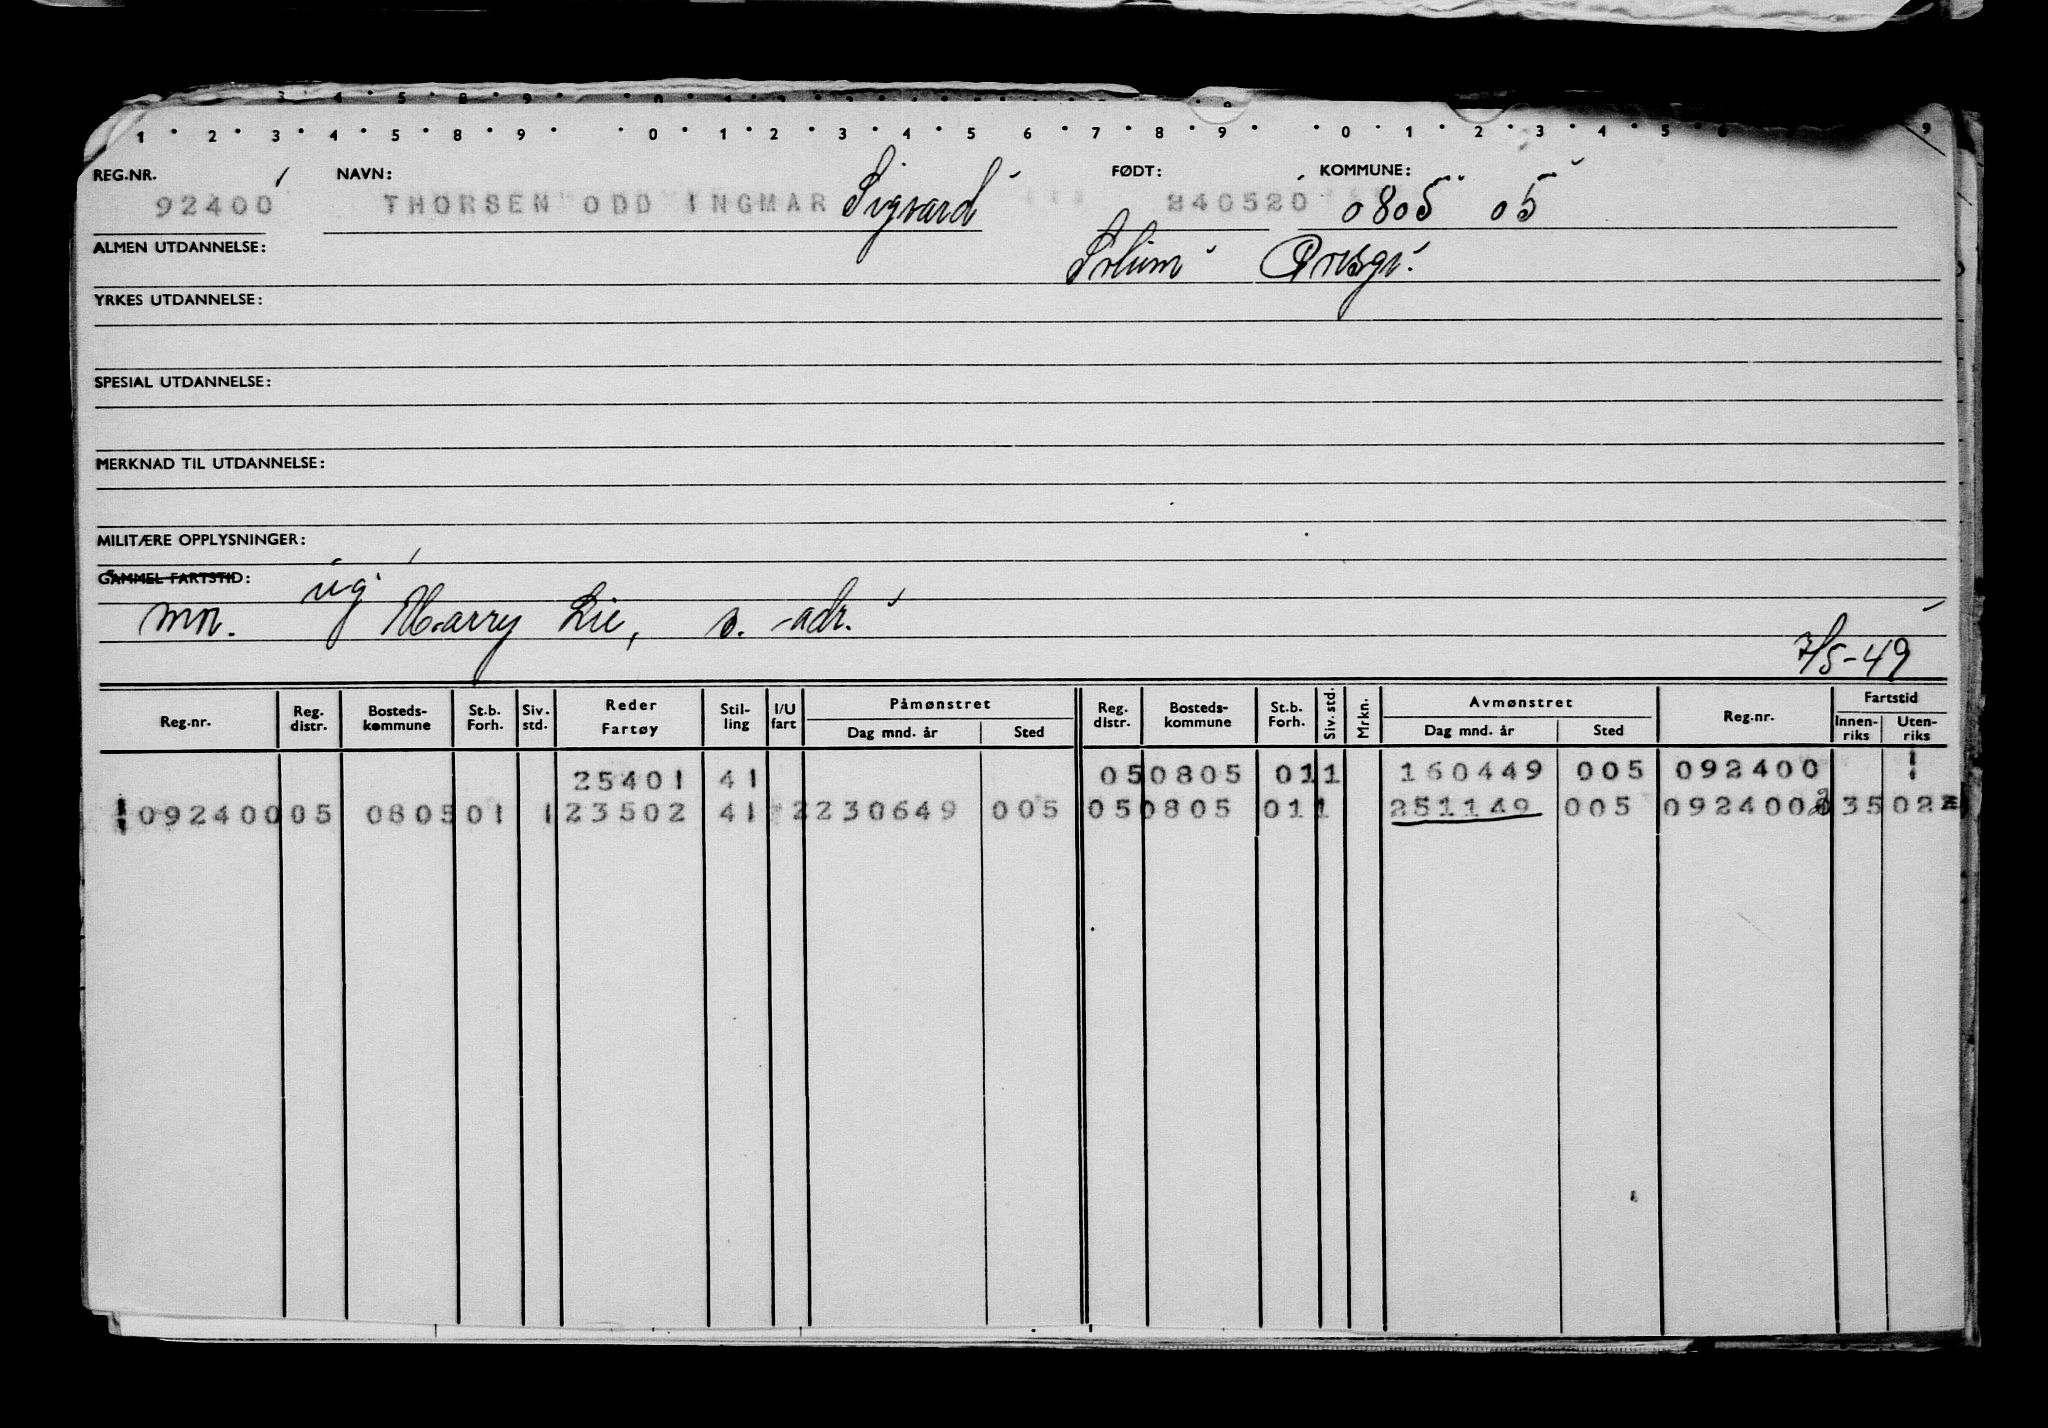 3 4 5 8 9 0 1 2 3 4 5 9
1 2 3 4 5 8 9 0 1 2 3 4 5 6 7 8 9 0 1 2 3 4 5 6 9
REG.NR. NAVN: FØDT: KOMMUNE:
92400 THORSEN ODD INGMAR Sigvard 240520 0805 05
ALMEN UTDANNELSE: Solum
YRKES UTDANNELSE:
SPESIAL UTDANNELSE:
MERKNAD TIL UTDANNELSE:
MILITÆRE OPPLYSNINGER:
GAMMEL FARTSTID: ug.
mn. Harry Lie, s. adr.
7/5-49
Reg.nr. Reg. distr. Bosteds-kommune St.b. Forh. Siv. std. Reder Fartøy Stil-ling I/U fart Påmønstret Dag mnd. år Sted Reg. distr. Bosteds-kommune St.b. Forh. Siv. std. Mrkn. Avmønstret Dag mnd. år Sted Reg.nr. Fartstid Innen-riks Uten-riks
25401 41 05 0805 01 1 160449 005 092400
092400 05 0805 01 1 23502 41 2 230649 005 05 0805 01 1 251149 005 092400 35 02